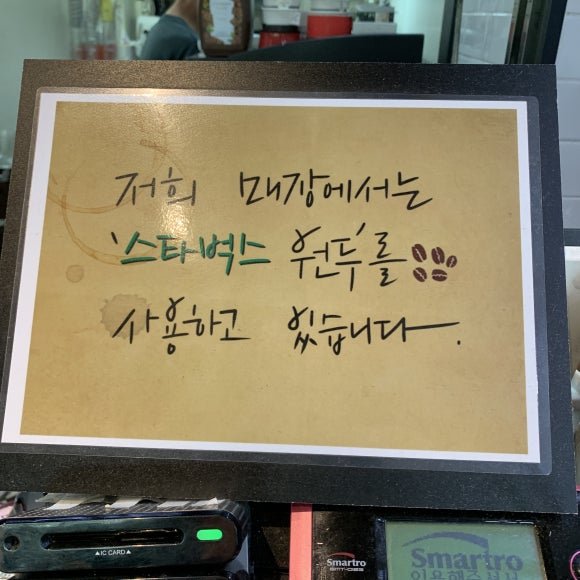 저희 매장에서는
'스타벅스 원두'를
사용하고 있습니다.
▲IC CARD▲
Smartro
Smartro